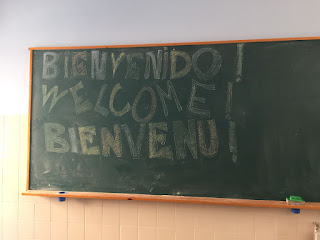 BIENVENIDO!
WELCOME!
BIENVENU!